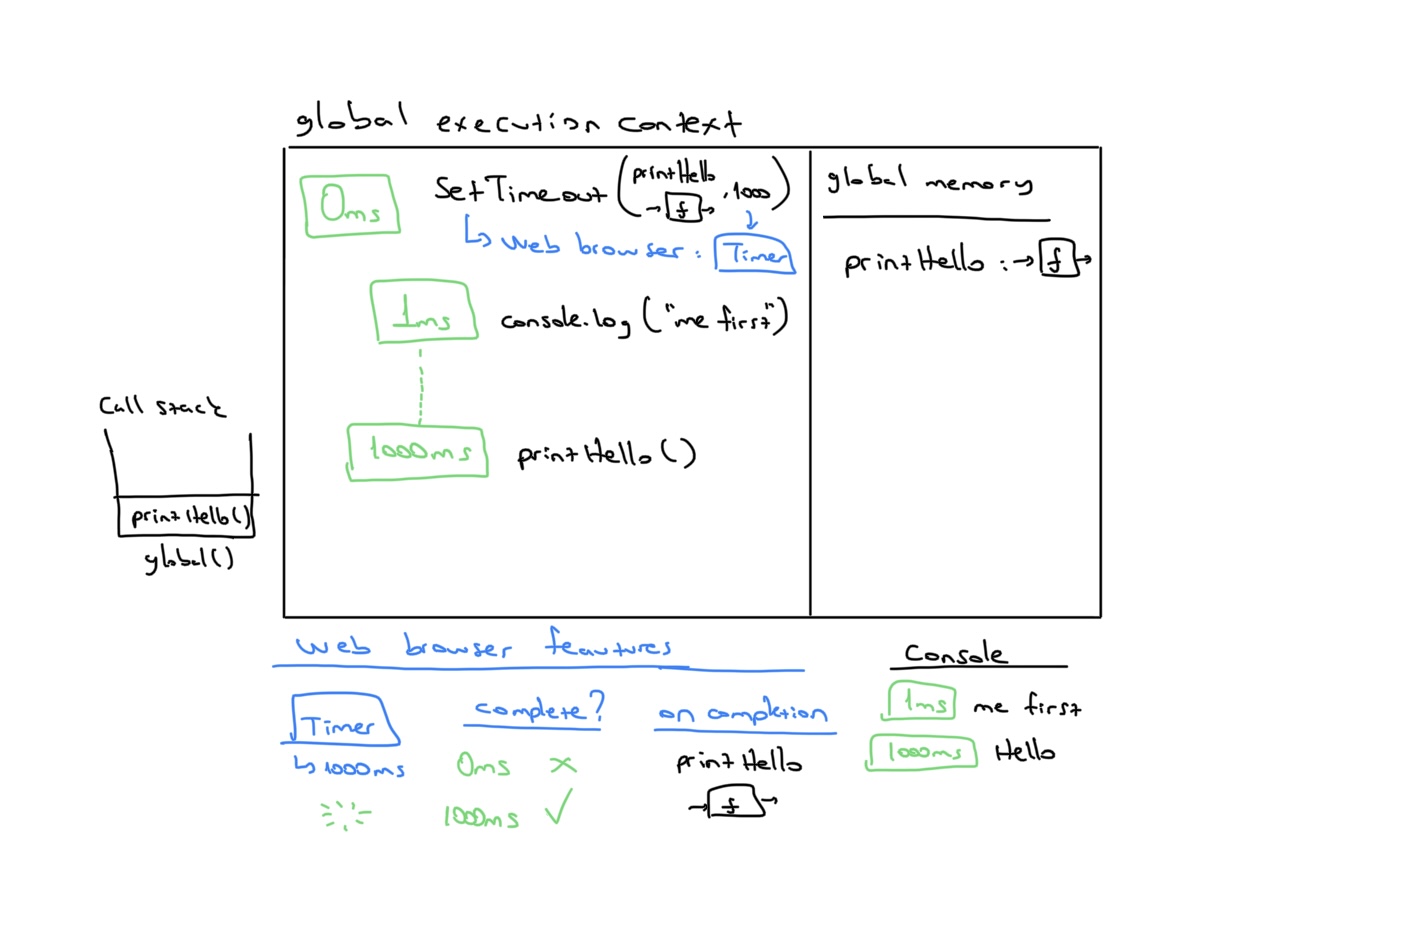 global execution context
0ms
SetTimeout (printHello , 1000)
→ f →
↳ Web browser : Timer
1ms
console.log ("me first")
1000ms
printHello ()
global memory
printHello : → f →
Call stack
printHello()
global()
Web browser feautures
Timer
↳ 1000ms
complete?
0ms ×
1000ms ✓
on completion
printHello
→ f →
Console
1ms me first
1000ms Hello